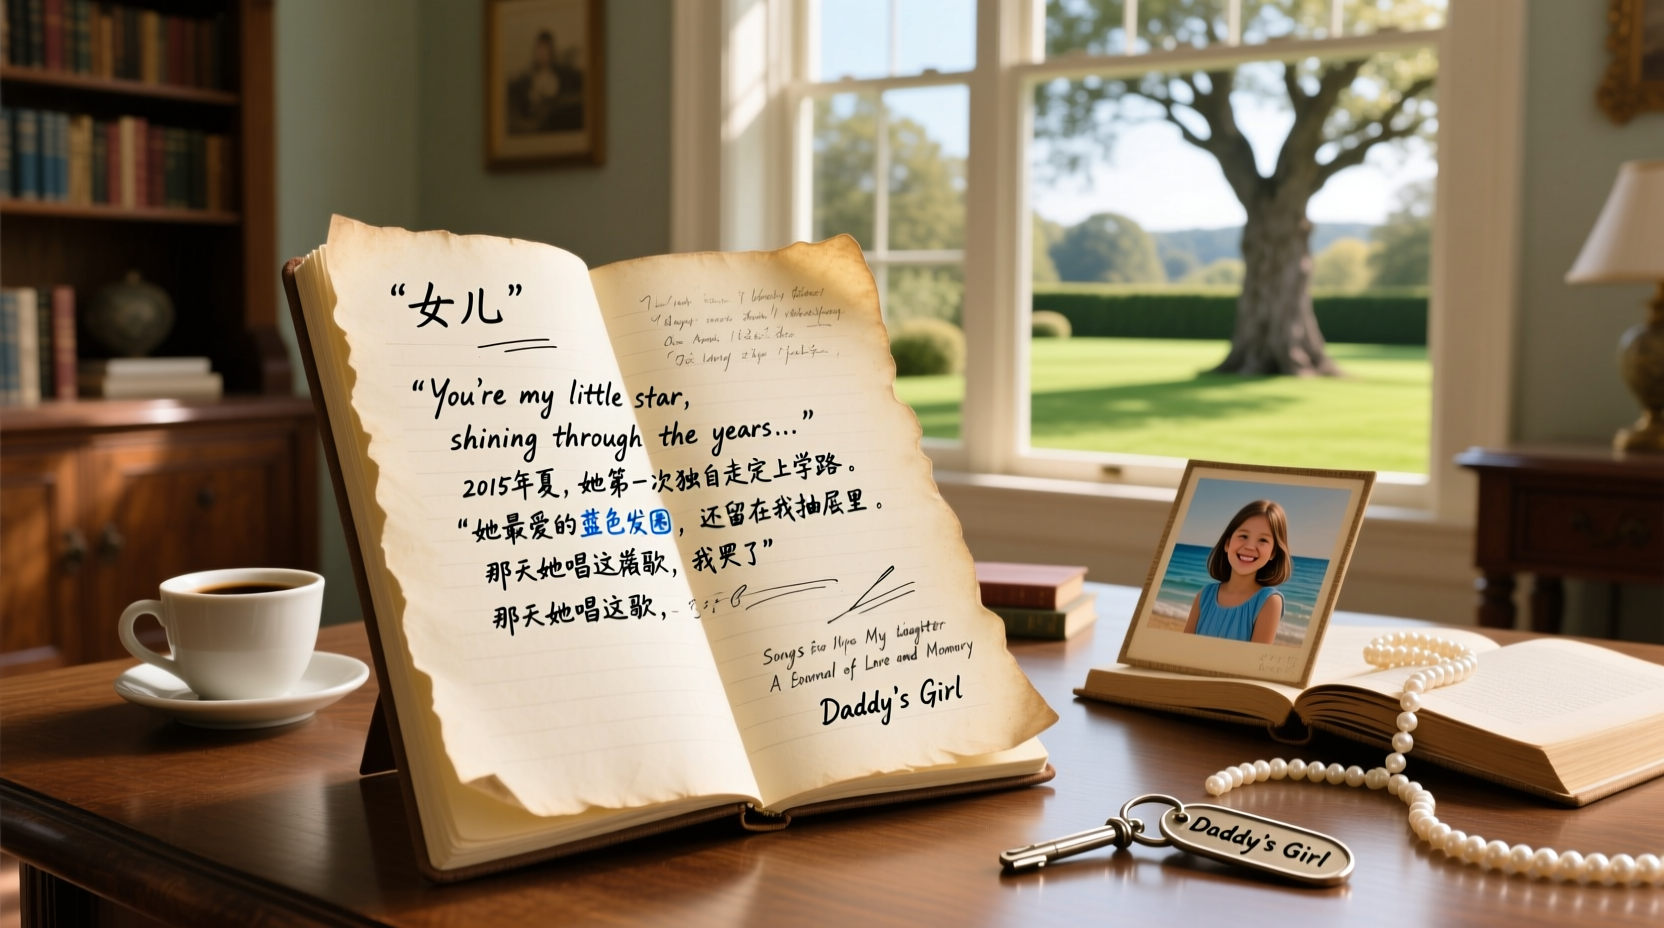 “女儿”
“You're my little star,
shining through the years...”
2015年夏，她第一次独自走定上学路。
“她最爱的蓝色发圈，还留在我抽屉里。
那天她唱这歌，我哭了”
那天她唱这歌，
Songs My
A of and
Daddy's Girl
Daddy's Girl